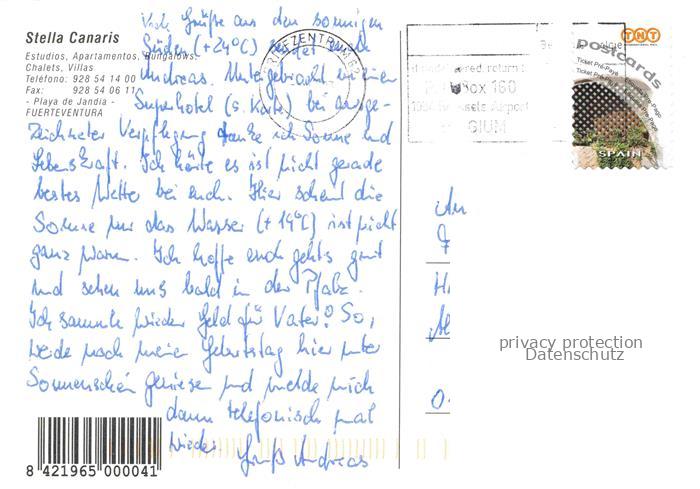 Stella Canaris
Estudios, Apartamentos, Bungalows,
Chalets, Villas
Teléfono: 928 54 14 00
Fax: 928 54 06 11
- Playa de Jandia -
FUERTEVENTURA
Viele Grüße aus dem sonnigen
Süden (+24°C) sendet
Andreas. Untergebracht in einem
Superhotel (s. Karte) bei ausge-
zeichneter Verpflegung tanke ich Sonne und
Lebenskraft. Ich hörte es ist nicht gerade
bestes Wetter bei euch. Hier scheint die
Sonne nur das Wasser (+19°C) ist nicht
ganz warm. Ich hoffe euch gehts gut
und sehen uns bald in der Pfalz.
Ich sammle wieder Geld für Vater? So,
werde noch meinen Geburtstag hier unter
Sonnenschein geniesen und melde mich
dann telefonisch mal
wieder. Gruß Andreas
8 421965 000041
BRIEFZENTRUM 62
return
Box 160
Airport
GIUM
TNT
Postcards
Ticket Pre-Paye
SPAIN
An
F
H
O
privacy protection
Datenschutz